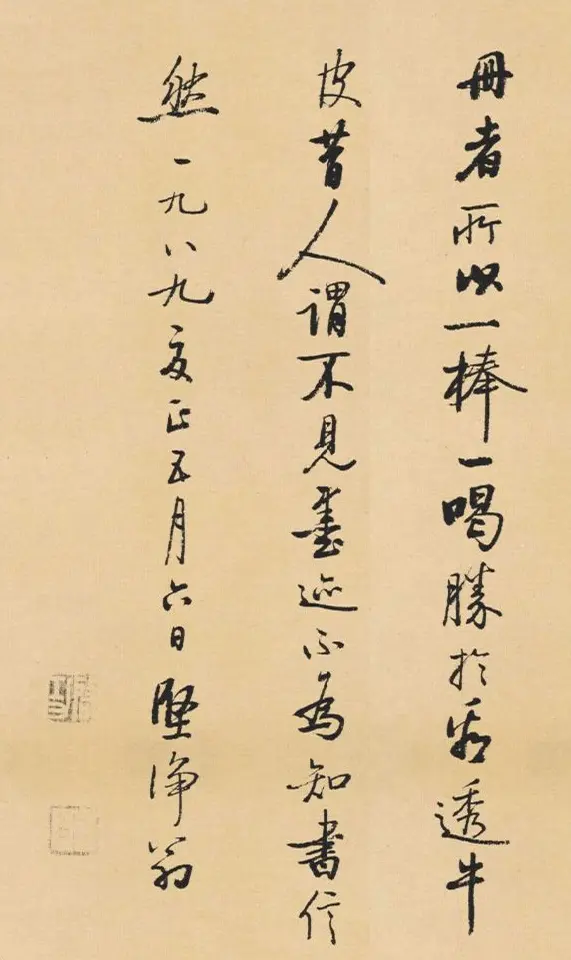 冊者所以一棒一喝勝於看透牛
皮昔人謂不見墨迹不為知書信
然一九八九夏正五月六日堅浄翁